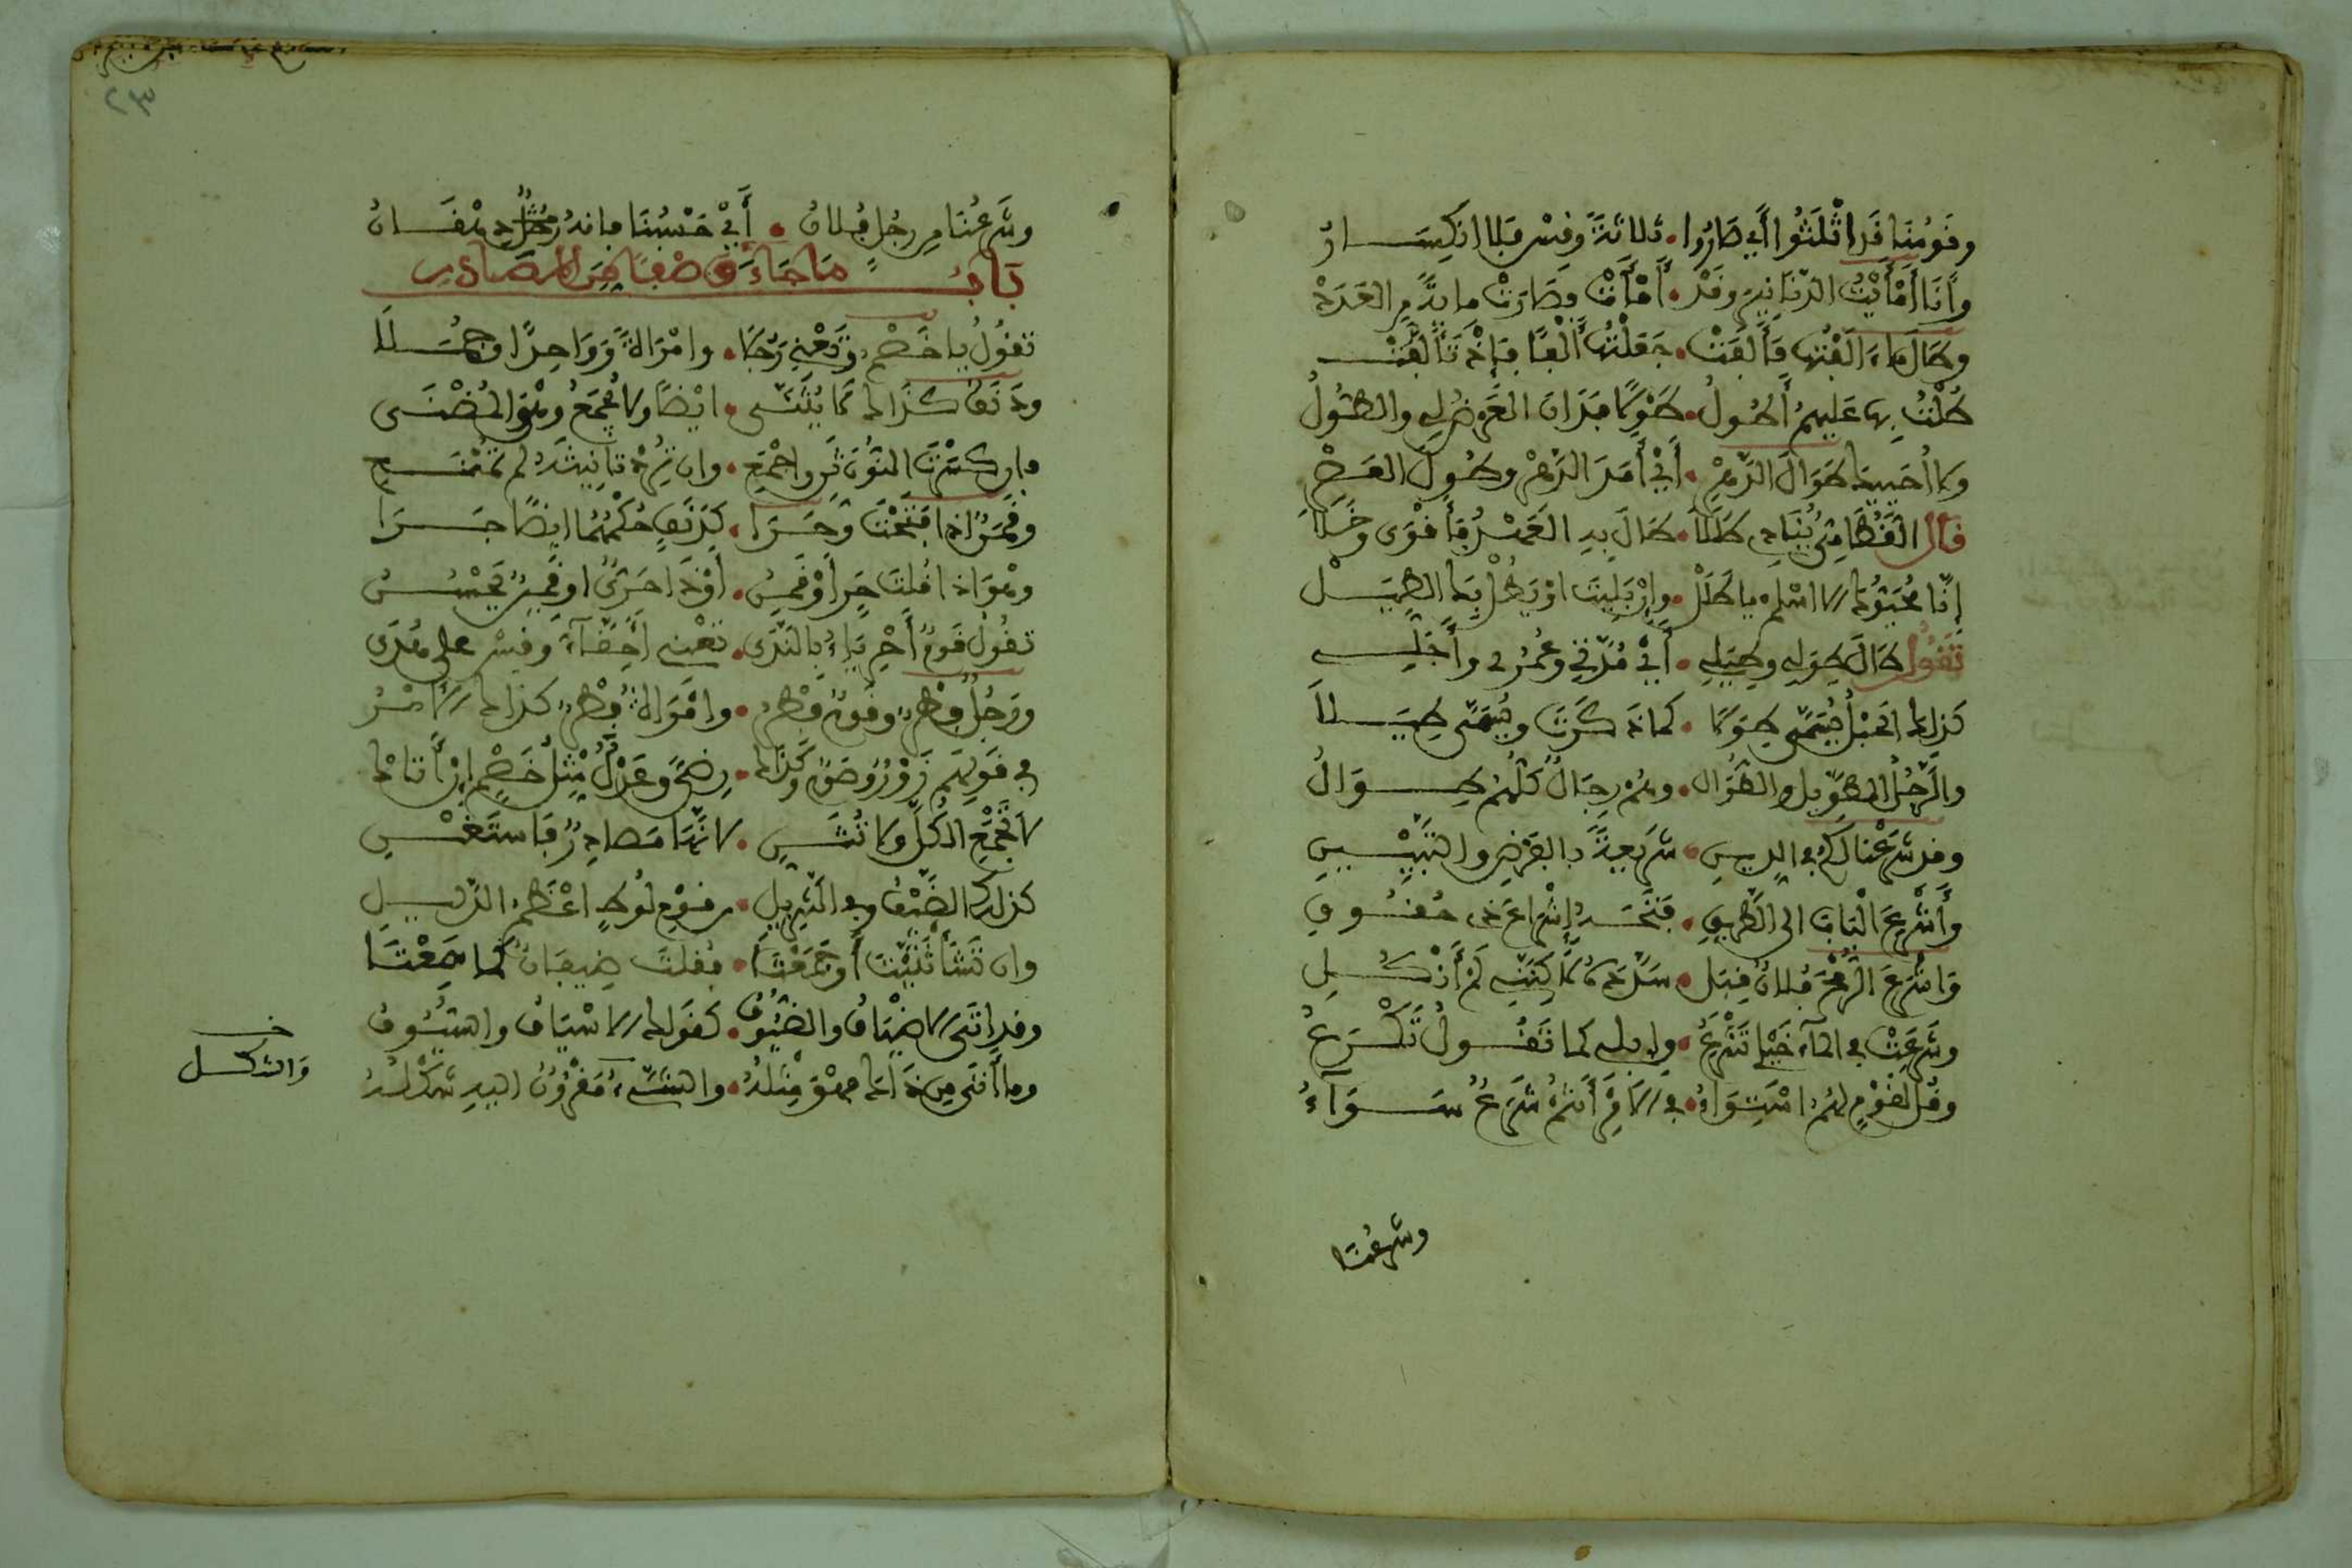 وقومنا قد اثلثوا أي صاروا • ثلاثة وقس بلا انكسار
وأنا أمأيت الدنانير وقد • أمأت وصارت ماية من العدد
وهاء الفتها فألفت • جعلتها ألفا فإذ تألفت
طلت بها عليهم أطول • طولا فدان العرض لي والطول
ولا أحييه طوال الدهر • أي أمد الدهر وطول العصر
قال القطامي يناجي طللا • طال به العمر فأقوى وخلا
إنا محيوك فاسلم يا طلل • وإن بليت اوان طالت بك الطيل
تقول طال طولي وطيلي • أي مدتي وعمري وأجلي
كذلك الحبل يسمى طولا • كما ذكرت ويسمى طيلا
والرجل الطويل والطوال • وهم رجال كلهم طوال
وقد شرعنا لكم في الدين • شريعة بالفرض والتبيين
وأشرع الباب إلى الطريق • فتحه إشراع ذي حقوق
واشرع الرمح فلان قبلي • سدده لكنني لم أنكل
وشرعت في الماء خيلي تشرع • وإبلي كما تقول تكرع
وقل لقوم لهم استواء • في الامر أنتم شرع سواء
وشرعنا
وشرعنا من رجل فلان • أي حسبنا فإنه رجل دهقان
باب ما جاء وصفا من المصادر
تقول يا خصم وتعني رجلا • وامراة وواحدا وجملا
ودنف كذاك لا يثنى • ايضا ولا يجمع وهو المضنى
فإن كسرت النون ثن واجمع • وإن ترد تانيثه لم تمنع
وقمن اذا فتحت وحرا • كدنف حكمهما ايضا جرا
وهو اذا قلت حر أو قمن • أو ذا حري او قمين يحسن
تقول قوم أحرياء بالندى • تعني أحقاء وقس على مدى
ورجل فطر وقوم فطر • وامراة فطر كذاك الامر
في قولهم زور وصوم وكذا • رضى وعدل مثل خصم إن أتاك
لا تجمع الكل ولا تثن • لانها مصادر فاستغن
كذلك الضيف وفي التنزيل • في قوم لوط اعظم الدليل
وان تشأ ثنيت أو جمعتا • فقلت ضيفان كما سمعتا
وقد اتى الاضياف والضيوف • كقولك الاسياف والسيوف
وما أتى من ذاك فهو مثله • والشيء مقرون اليه شكله
خ
والشكل